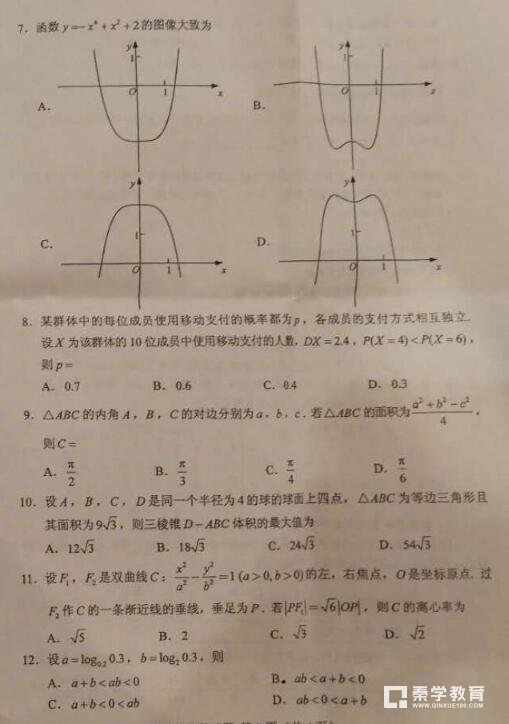 7．函数 y=-x⁴+x²+2 的图像大致为
y
1
O
1
x
A．
y
1
O
1
x
B．
y
1
O
1
x
C．
y
1
O
1
x
D．
8．某群体中的每位成员使用移动支付的概率都为 p，各成员的支付方式相互独立．
设 X 为该群体的 10 位成员中使用移动支付的人数，DX = 2.4，P(X = 4) < P(X = 6)，
则 p =
A．0.7 B．0.6 C．0.4 D．0.3
9．△ABC 的内角 A，B，C 的对边分别为 a，b，c．若△ABC 的面积为 (a²+b²-c²)/4，
则 C =
A．π/2 B．π/3 C．π/4 D．π/6
10．设 A，B，C，D 是同一个半径为 4 的球的球面上四点，△ABC 为等边三角形且
其面积为 9√3，则三棱锥 D-ABC 体积的最大值为
A．12√3 B．18√3 C．24√3 D．54√3
11．设 F₁，F₂ 是双曲线 C：x²/a² - y²/b² = 1 (a>0, b>0) 的左，右焦点，O 是坐标原点．过
F₂ 作 C 的一条渐近线的垂线，垂足为 P．若 |PF₁| = √6|OP|，则 C 的离心率为
A．√5 B．2 C．√3 D．√2
12．设 a = log₀.₂ 0.3，b = log₂ 0.3，则
A．a+b<ab<0 B．ab<a+b<0
C．a+b<0<ab D．ab<0<a+b
秦学教育
WWW.QINXUE100.COM